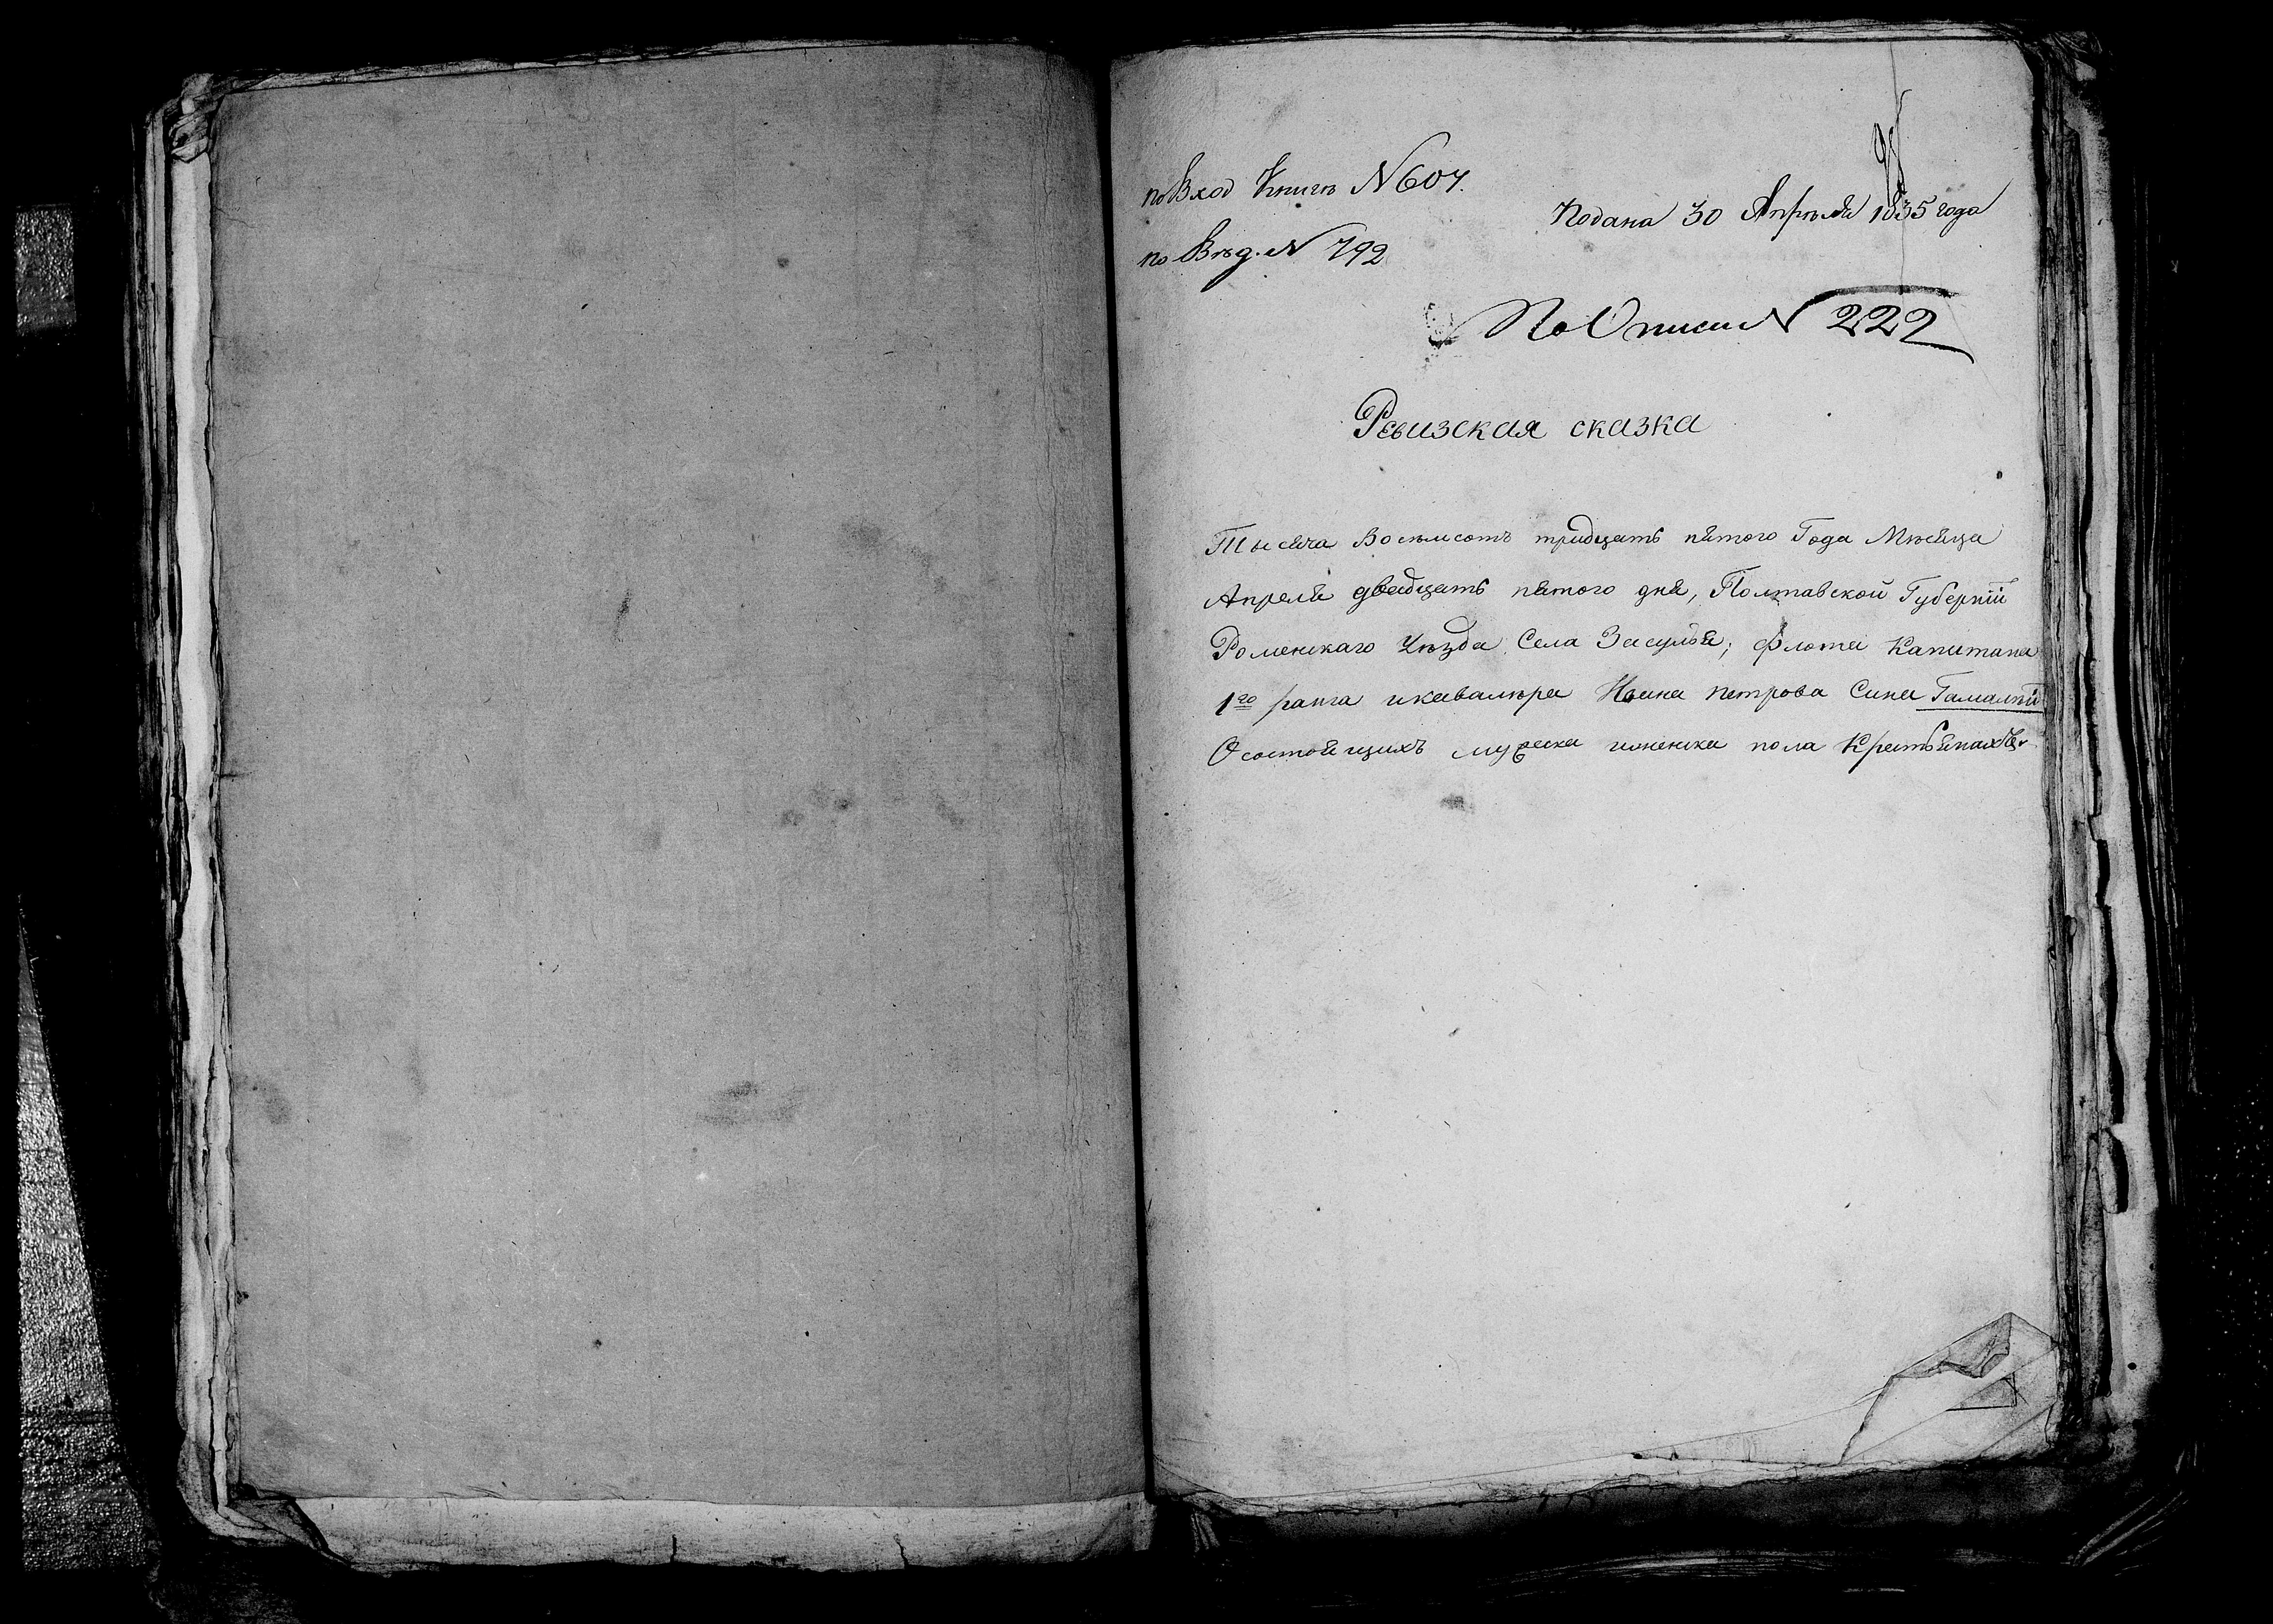 по Вход Книгѣ N 607.
Подана 30 Апрѣля 1835 года
по Вѣд. N 792
По Описи N 222
Ревизская сказка
Тысяча Восемсотъ тридцать пятого Года Мѣсяца
Апреля двадцать пятого дня, Полтавской Губерніи
Роменскаго Уѣзда Села Засулья; Флота Капитана
1го ранга икавалѣра Ивана Петрова Сина Гамалѣи
О состоящихъ мужеска иженска пола Крестьянахъ